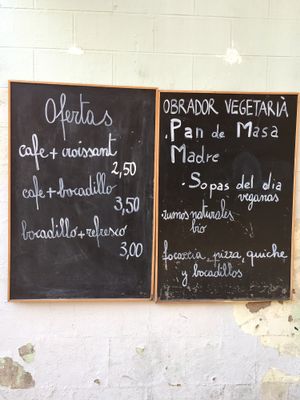 Ofertas
cafe + croissant
2,50
cafe + bocadillo
3,50
bocadillo + refresco
3,00
OBRADOR VEGETARIÀ
. Pan de Masa
Madre
. Sopas del dia
veganas
zumos naturales
bio
focaccia, pizza, quiche
y bocadillos